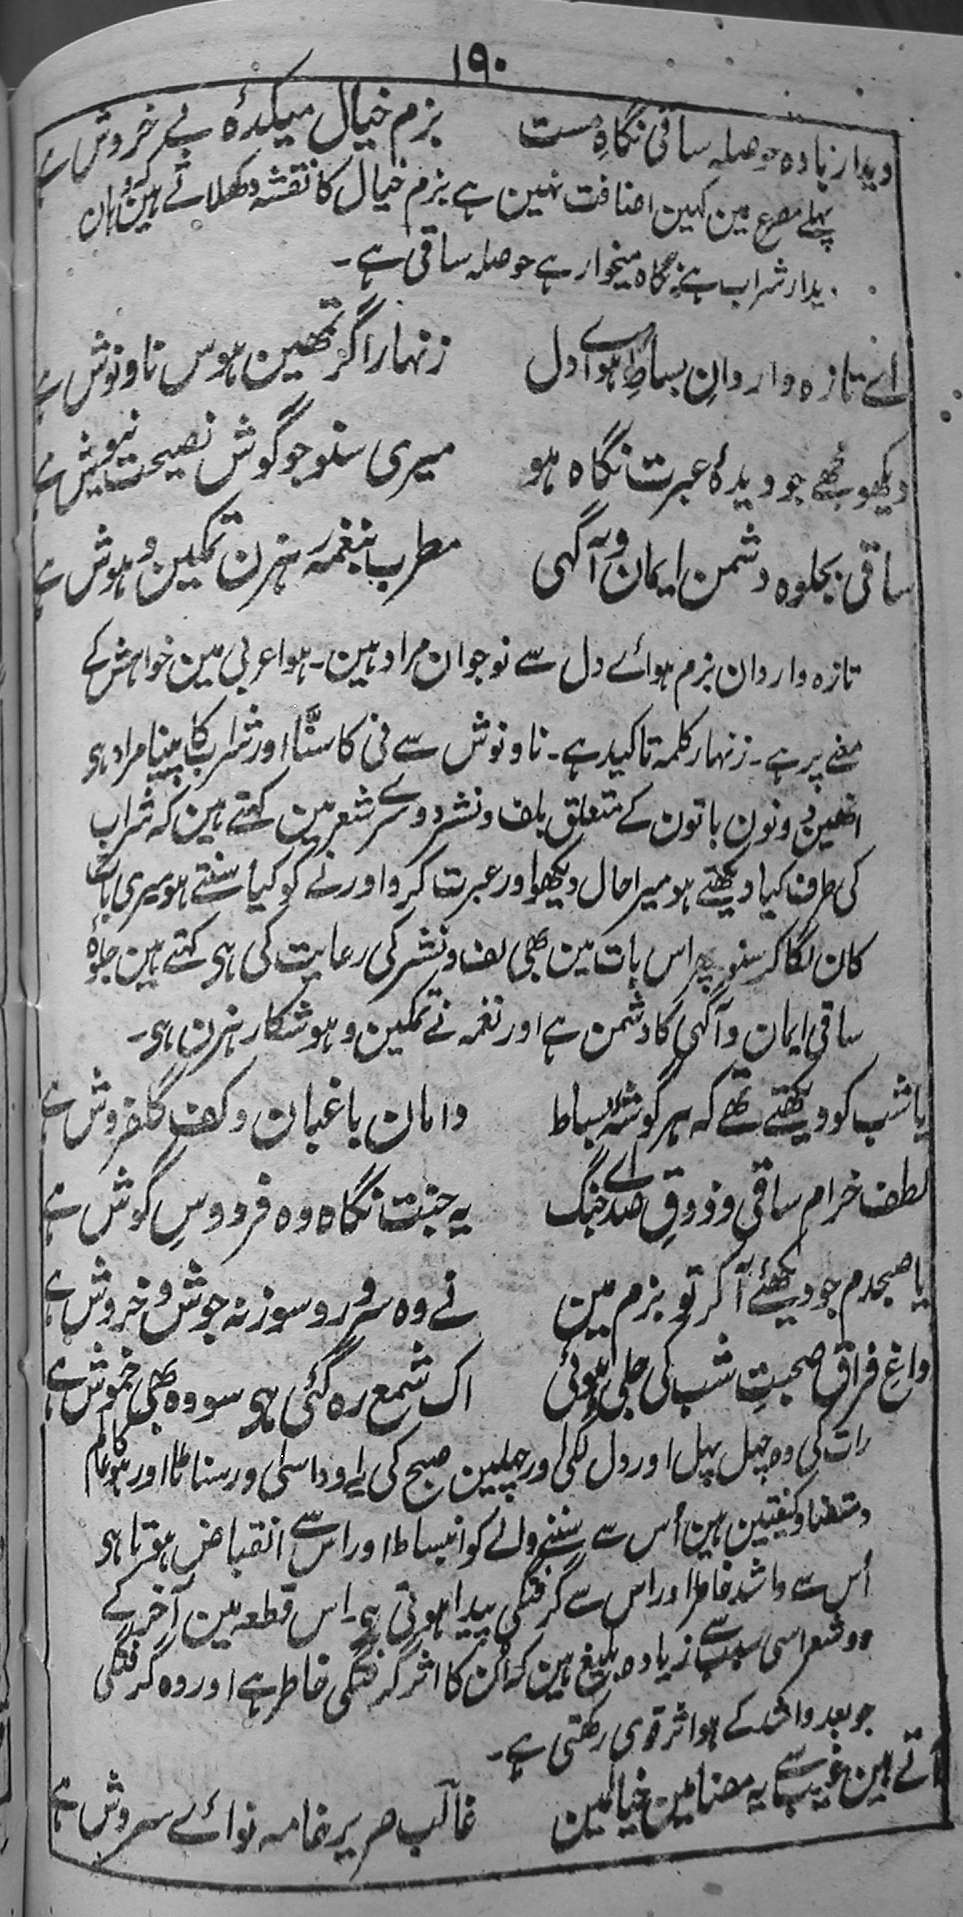 ۱۹۰
دیدار بادہ حوصلہ ساقی نگاہِ مست بزم خیال میکدۂ بے خروش ہے
پہلے مصرع مین کہین اضافت نہین ہے بزم خیال کا نقشہ دکھلاتے ہین کہ وہان
دیدار شراب ہے نگاہ میخوار ہے حوصلہ ساقی ہے۔
اے تازہ واردانِ بساطِ ہوائے دل زنہار اگر تمھین ہوس ناو نوش ہے
دیکھو مجھے جو دیدۂ عبرت نگاہ ہو میری سنو جو گوش نصیحت نیوش ہے
ساقی بجلوہ دشمن ایمان و آگہی مطرب بنغمہ رہزن تمکین و ہوش ہے
تازہ واردان بزم ہوائے دل سے نوجوان مراد ہین۔ ہوا عربی مین خواہش کے
معنے پر ہے۔ زنہار کلمہ تاکید ہے۔ ناو نوش سے نی کا سننا اور شراب کا پینا مراد ہی
انھین دونون باتون کے متعلق بلف و نشر دوسرے شعر مین کہتے ہین کہ شراب
کی طرف کیا دیکھتے ہو میرا حال دیکھو اور عبرت کرو اور نے کو کیا سنتے ہو میری بات
کان لگا کر سنو پھر اس بات مین بھی لف و نشر کی رعایت کی ہی کہتے ہین جلوۂ
ساقی ایمان و آگہی کا دشمن ہے اور نغمہ نے تمکین و ہوش کا رہزن ہی۔
یا شب کو دیکھتے تھے کہ ہر گوشۂ بساط دامان باغبان و کف گلفروش ہے
لطف خرام ساقی و ذوقِ صدائے چنگ یہ جنت نگاہ وہ فردوسِ گوش ہے
یا صبحدم جو دیکھئے آ کر تو بزم مین نے وہ سرور و سوز نہ جوش و خروش ہے
داغِ فراقِ صحبتِ شب کی جلی ہوئی اک شمع رہ گئی ہی سو وہ بھی خموش ہے
رات کی وہ چہل پہل اور دل لگی اور چہلین صبح کی یہ اوداسی اور سناٹا اور ہو کا عالم
دو متضاد کیفیتین ہین اُس سے سننے والے کو انبساط اور اس سے انقباض ہوتا ہی
اُس سے واشد خاطر اور اس سے گرفتگی پیدا ہوتی ہی۔ اس قطعہ مین آخر کے
دو شعر اسی سبب سے زیادہ بلیغ ہین کہ اُن کا اثر گرفتگی خاطر ہے اور وہ گرفتگی
جو بعد واشد کے ہو اثر قوی رکھتی ہے۔
آتے ہین غیب سے یہ مضامین خیال مین غالب صریر خامہ نوائے سروش ہے